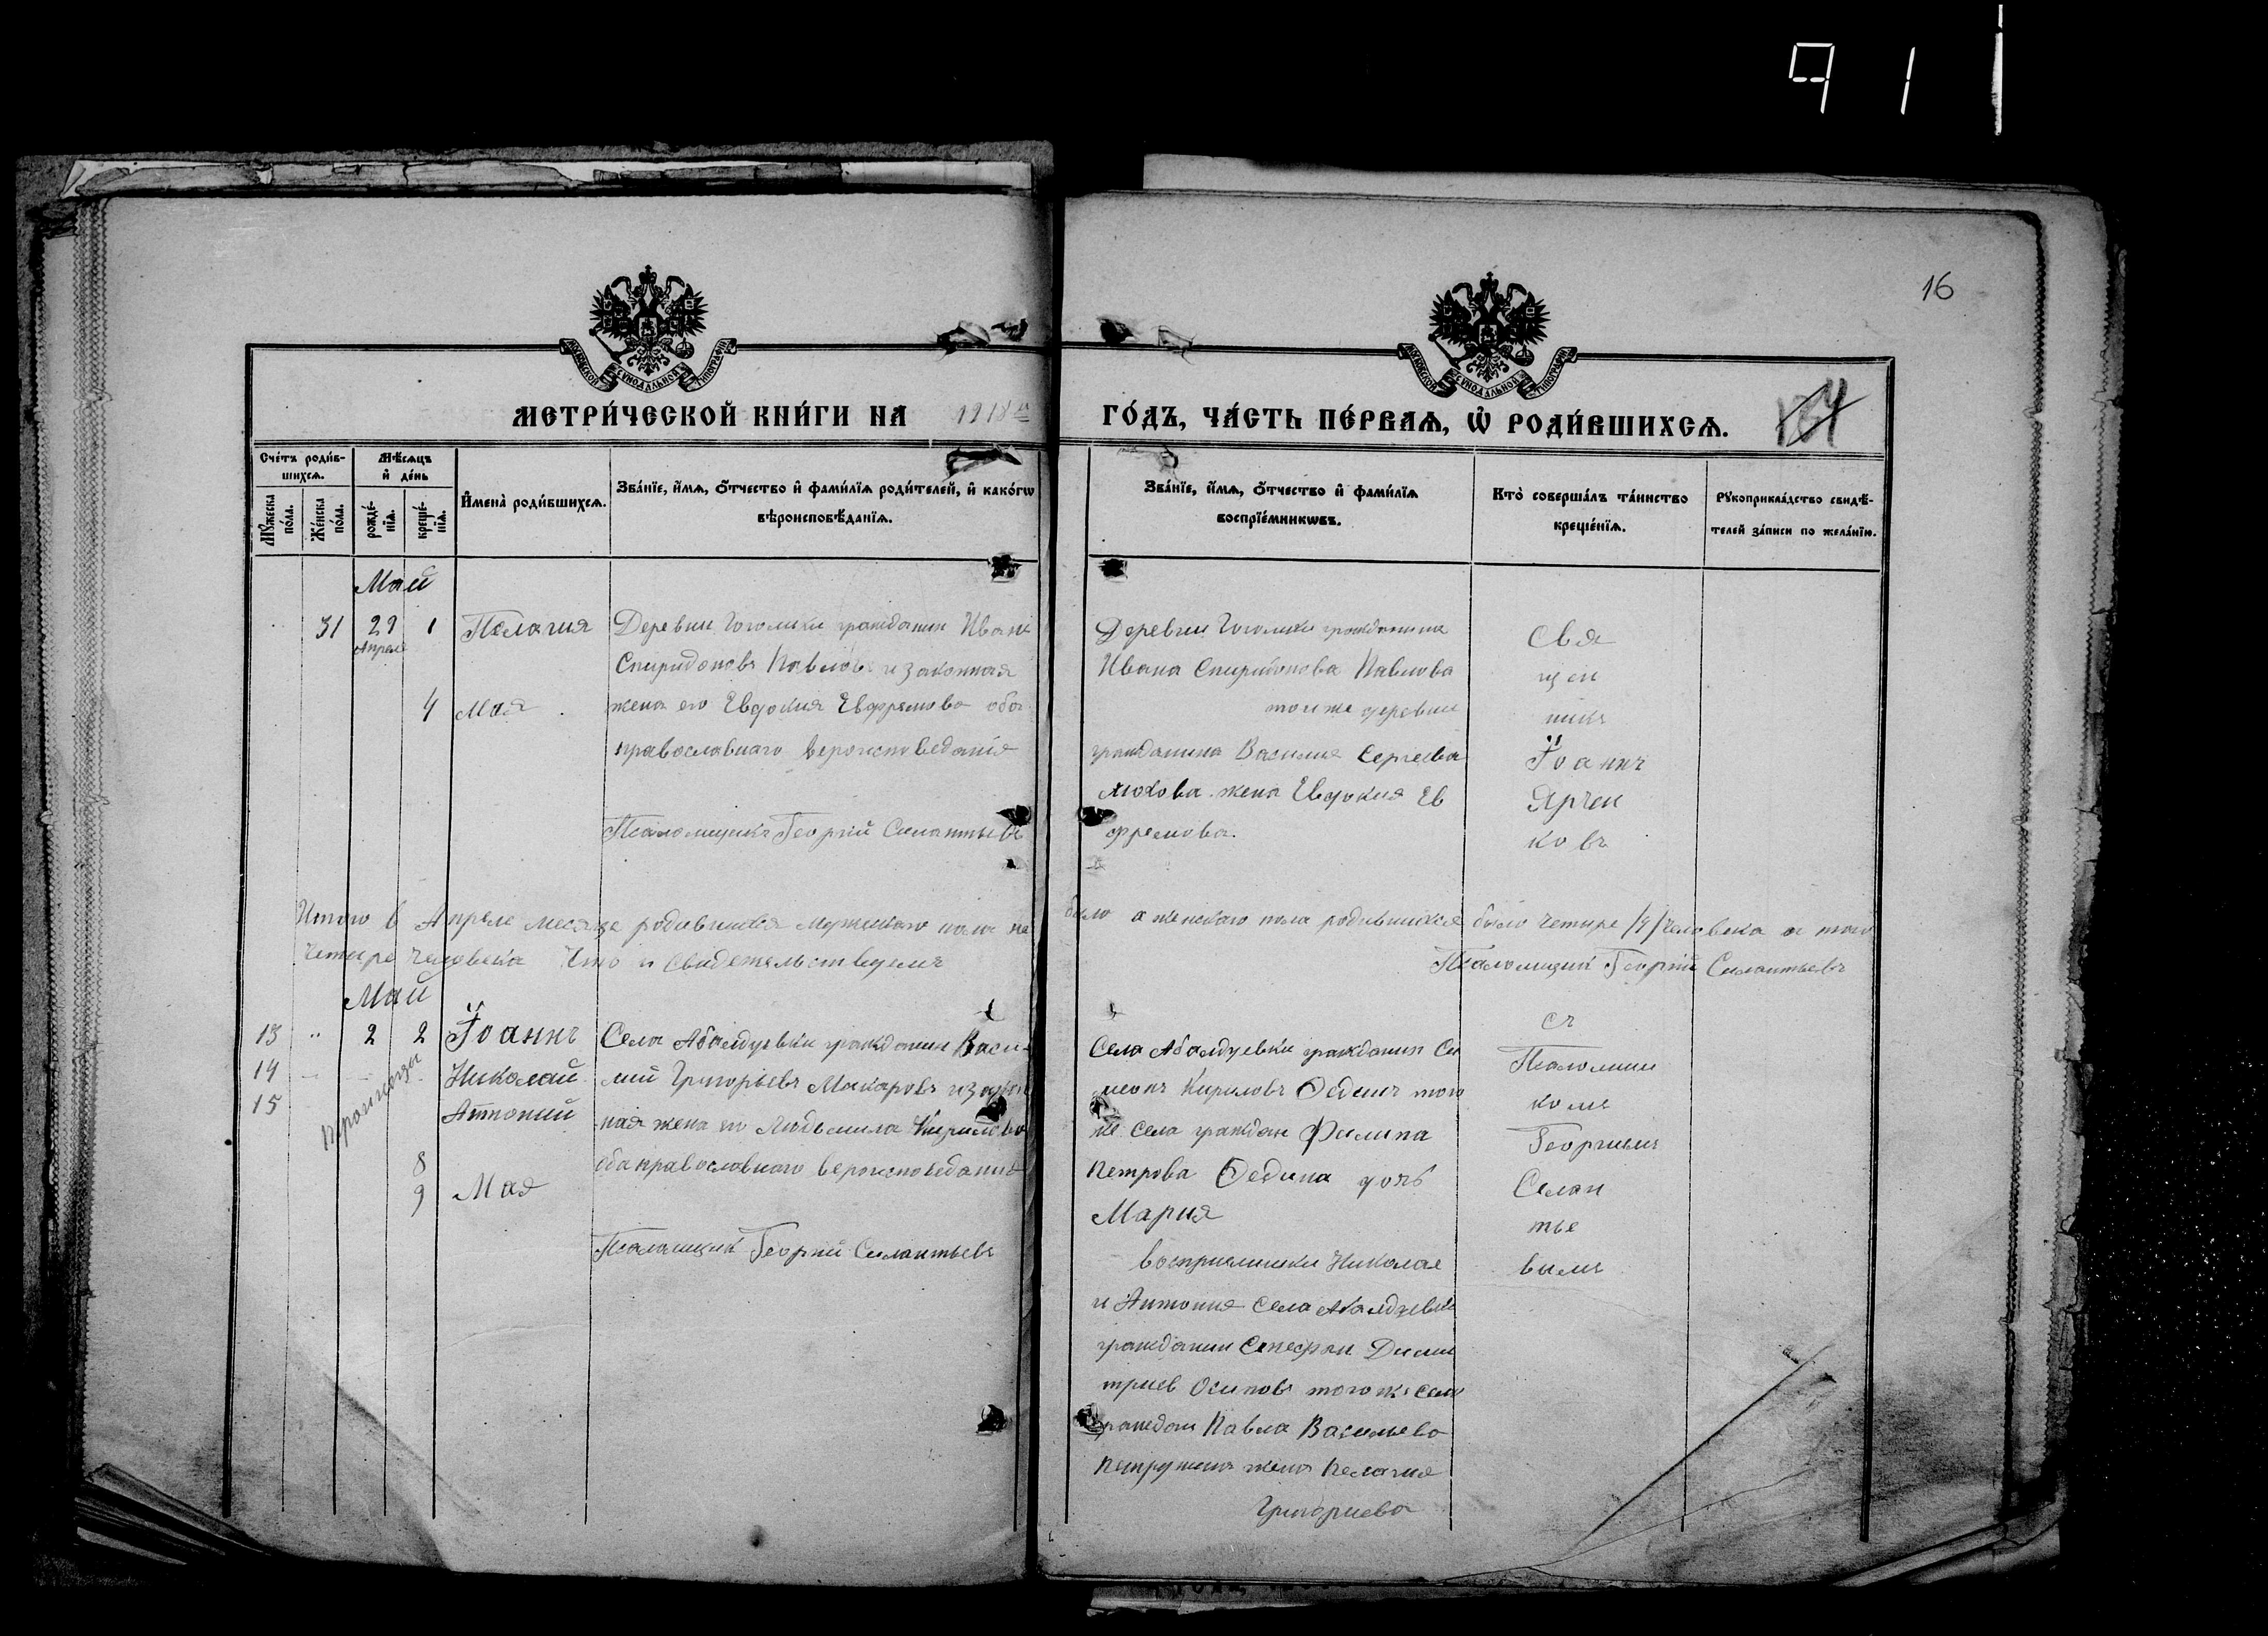 911
16
МОСКОВСКОЙ СѴНОДАЛЬНОЙ ТИПОГРАФІИ
МОСКОВСКОЙ СѴНОДАЛЬНОЙ ТИПОГРАФІИ
МЕТРИ́ЧЕСКОЙ КНИ́ГИ НА 1918 го
ГО́ДЪ, ЧА́СТЬ ПЕ́РВАѦ, Ѡ҆ РОДИ́ВШИХСѦ.
Сче́тъ роди́в-
шихсѧ.
Мꙋ́жеска по́ла.
Же́нска по́ла.
Мѣ́сѧцъ
и҆ де́нь
рожде́-
нїѧ.
креще́-
нїѧ.
И҆мена̀ роди́вшихсѧ.
Зва́нїе, и҆́мѧ, ѻ҆́тчество и҆ фами́лїѧ роди́телей, и҆ како́гѡ
вѣроисповѣ́данїѧ.
Зва́нїе, и҆́мѧ, ѻ҆́тчество и҆ фами́лїѧ
воспрїе́мникѡвъ.
Кто̀ соверша́лъ та́инство
креще́нїѧ.
Рꙋкоприкла́дство свидѣ́-
телей за́писи по жела́нїю.
Май
31 29 1 Пелагия Деревни Гоголихи гражданин Иванъ
Апреля
Спиридоновъ Павловъ и законная
4 Мая жена его Евдокия Ефремова оба
православнаго вероисповедания
Псаломщикъ Георгий Силантьевъ
Деревни Гоголихи гражданина
Ивана Спиридонова Павлова
тоиже деревни
гражданина Василия Сергеева
жена Евдокия Ев
фремова.
Свя
щен
никъ
Іоаннъ
Ярчен
ковъ
Итого в Апреле месяце родившихся мужескаго пола не было а женскаго пола родившихся было четыре /4/ человека а того
четыре человека Что и свидетельствуемъ Псаломщик Георгий Силантьевъ
Май
13 " 2 2 Іоаннъ Села Абалдуевки гражданин Васи-
14 Николай лий Григорьевъ Макаровъ и закон
15 Антоний ная жена его Людьмила Кирилова
8 оба православнаго вероисповедания
9 Мая
Псаломщик Георгий Силантьевъ
Села Абалдуевки гражданин Си
меонъ Кириловъ Фединъ того
же села граждан Филипа
Петрова Федина дочь
Мария
восприемники Николая
и Антония Села Абалдуевки
гражданин Димит
триев Осиповъ того же села
граждан Павла Васильева
Петрушина жена Пелагия
Григориева
съ
Псаломщи
комъ
Георгиемъ
Силан
тье
вымъ